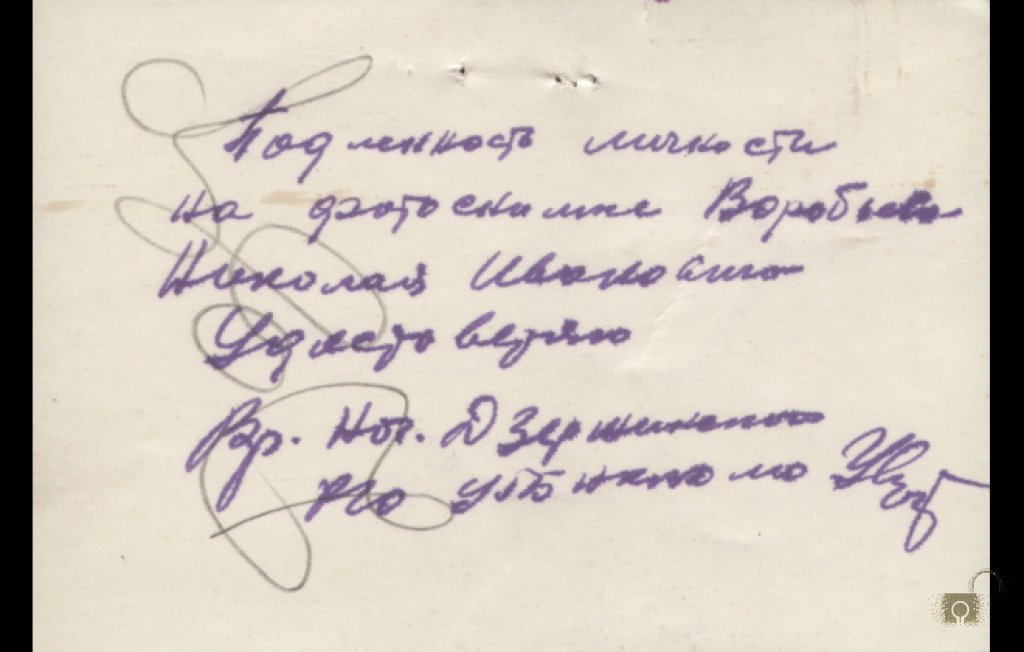 Подлинность личности
на фотоснимке Воробьева
Николая Ивановича
Удостоверяю
Вр. Нач. Дзержинского
РО